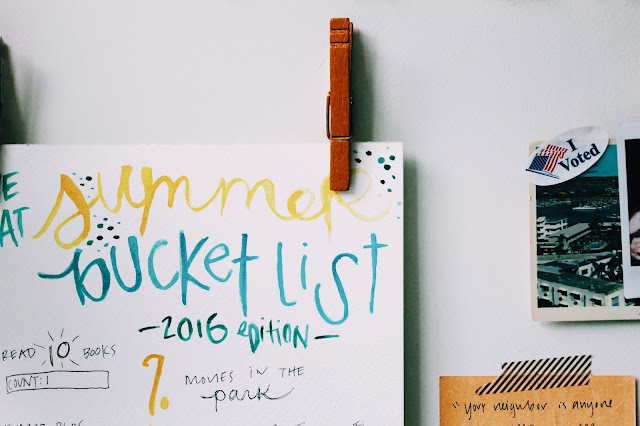 summer
bucket list
-2016 edition-
READ 10 BOOKS
COUNT: 1
7. MOVIES IN THE
park
I Voted
"your neighbor is anyone